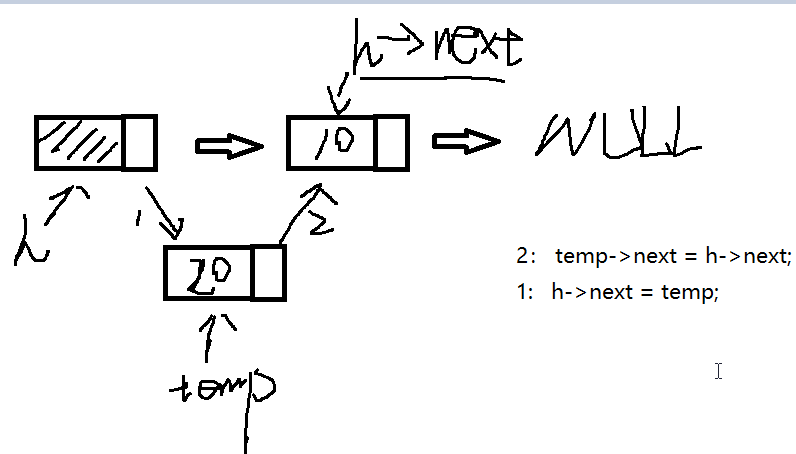 h->next
10
NULL
h
1
2
20
2: temp->next = h->next;
1: h->next = temp;
temp